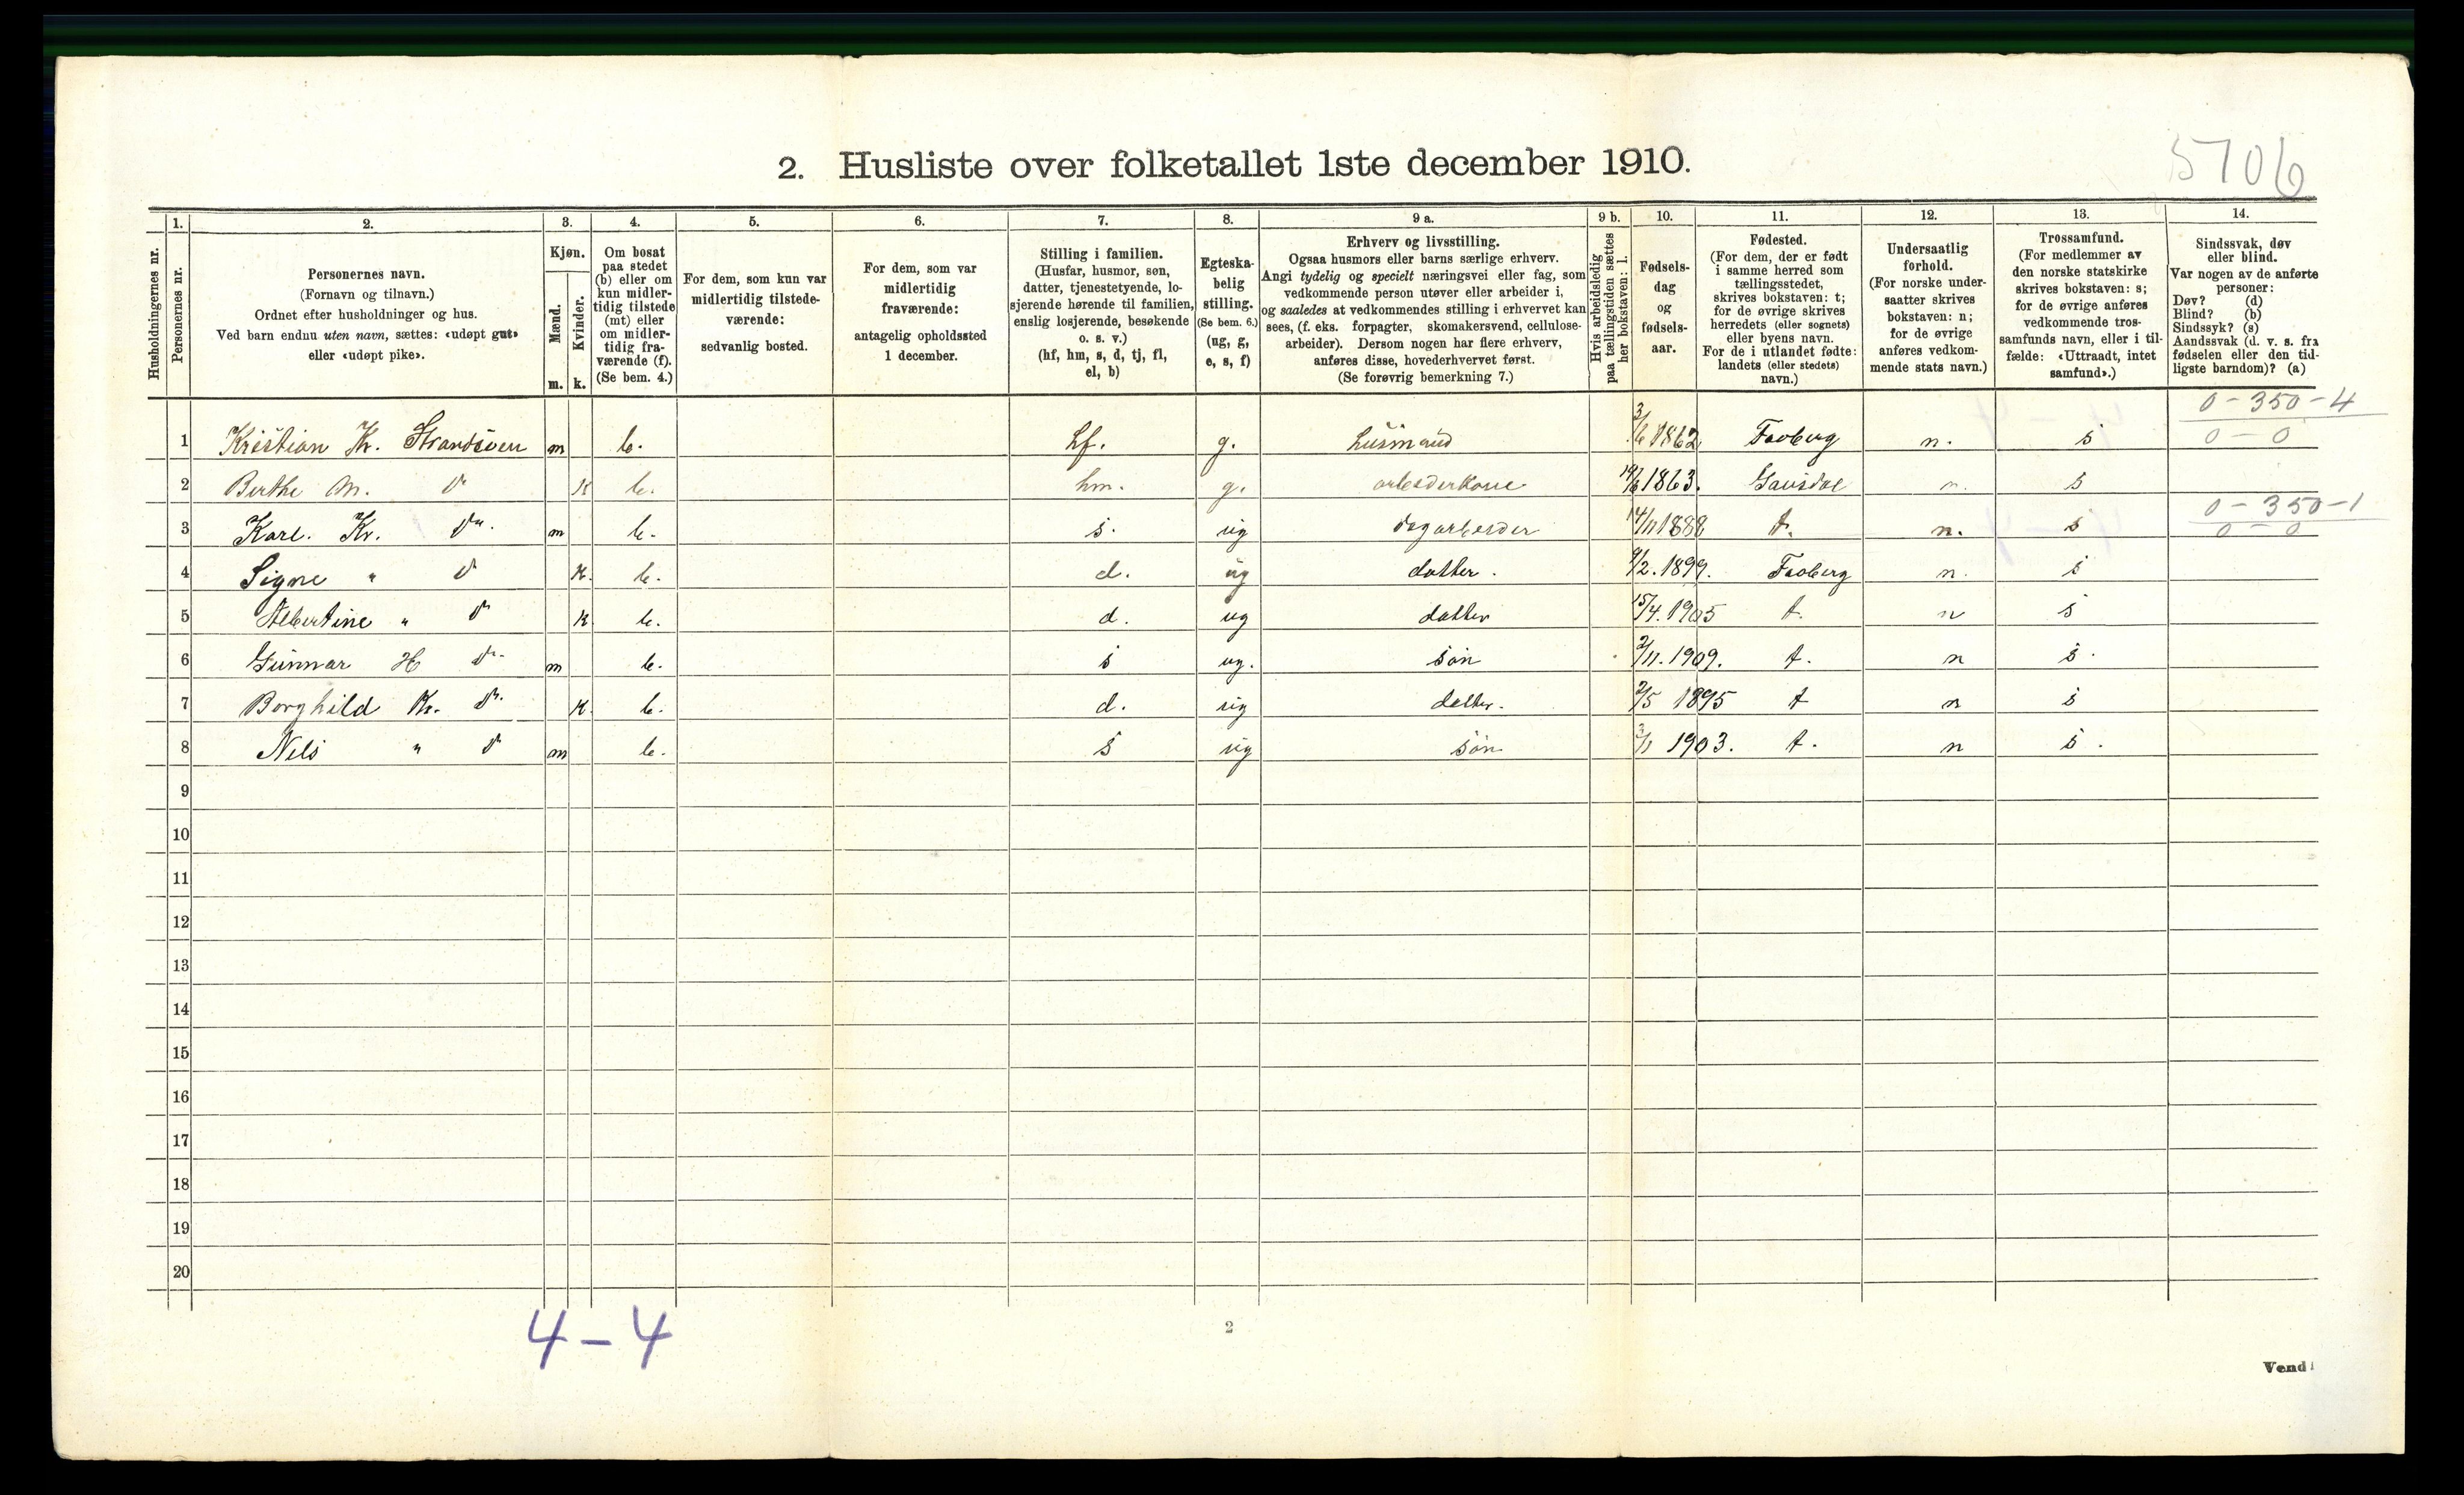 5706
2. Husliste over folketallet 1ste december 1910.
Husholdningernes nr.
1. Personernes nr.
2. Personernes navn.
(Fornavn og tilnavn.)
Ordnet efter husholdninger og hus.
Ved barn endnu uten navn, sættes: «udøpt gut»
eller «udøpt pike».
3. Kjøn.
Mænd. m.
Kvinder. k.
4. Om bosat
paa stedet
(b) eller om
kun midler-
tidig tilstede
(mt) eller
om midler-
tidig fra-
værende (f).
(Se bem. 4.)
5. For dem, som kun var
midlertidig tilstede-
værende:
sedvanlig bosted.
6. For dem, som var
midlertidig
fraværende:
antagelig opholdssted
1 december.
7. Stilling i familien.
(Husfar, husmor, søn,
datter, tjenestetyende, lo-
sjerende hørende til familien,
enslig losjerende, besøkende
o. s. v.)
(hf, hm, s, d, tj, fl,
el, b)
8. Egteska-
belig
stilling.
(Se bem. 6.)
(ug, g,
e, s, f)
9 a. Erhverv og livsstilling.
Ogsaa husmors eller barns særlige erhverv.
Angi tydelig og specielt næringsvei eller fag, som
vedkommende person utøver eller arbeider i,
og saaledes at vedkommendes stilling i erhvervet kan
sees, (f. eks. forpagter, skomakersvend, cellulose-
arbeider). Dersom nogen har flere erhverv,
anføres disse, hovederhvervet først.
(Se forøvrig bemerkning 7.)
9 b. Hvis arbeidsledig
paa tællingstiden sættes
her bokstaven: l.
10. Fødsels-
dag
og
fødsels-
aar.
11. Fødested.
(For dem, der er født
i samme herred som
tællingsstedet,
skrives bokstaven: t;
for de øvrige skrives
herredets (eller sognets)
eller byens navn.
For de i utlandet fødte:
landets (eller stedets)
navn.)
12. Undersaatlig
forhold.
(For norske under-
saatter skrives
bokstaven: n;
for de øvrige
anføres vedkom-
mende stats navn.)
13. Trossamfund.
(For medlemmer av
den norske statskirke
skrives bokstaven: s;
for de øvrige anføres
vedkommende tros-
samfunds navn, eller i til-
fælde: «Uttraadt, intet
samfund».)
14. Sindssvak, døv
eller blind.
Var nogen av de anførte
personer:
Døv? (d)
Blind? (b)
Sindssyk? (s)
Aandssvak (d. v. s. fra
fødselen eller den tid-
ligste barndom)? (a)
0 - 350 - 4
1 Kristian Kr. m b. hf. g. husmand 3/6 1862 Faaberg n. s 0 - 0
2 Berthe M. d k b. hm. g. arbeiderkone 1863. Gausdal n. s
0 - 350 - 1
3 Karl. Kr. do. m b. s. ug dagarbeider 14/11 1888 t. n. s 0 - 0
4 Signe " d k. b. d. ug datter. 9/2. 1899. Faaberg n. s
5 Albertine " do k b. d. ug datter 15/4. 1905 t. n s
6 Gunnar H do. m b. s ug. søn 2/11. 1909. t. n s.
7 Borghild Kr. do. k. b. d. ug datter. 2/5 1895 t n s
8 Nils " d m b. s ug søn 3/1 1903. t. n s.
9
10
11
12
13
14
15
16
17
18
19
20
4 - 4
2
Vend!